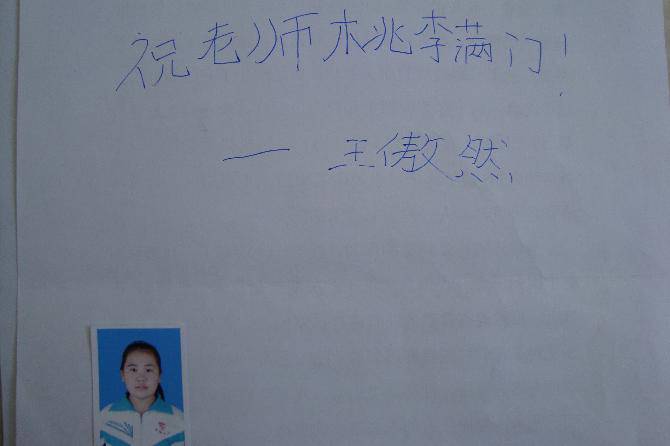 祝老师桃李满门!
— 王傲然